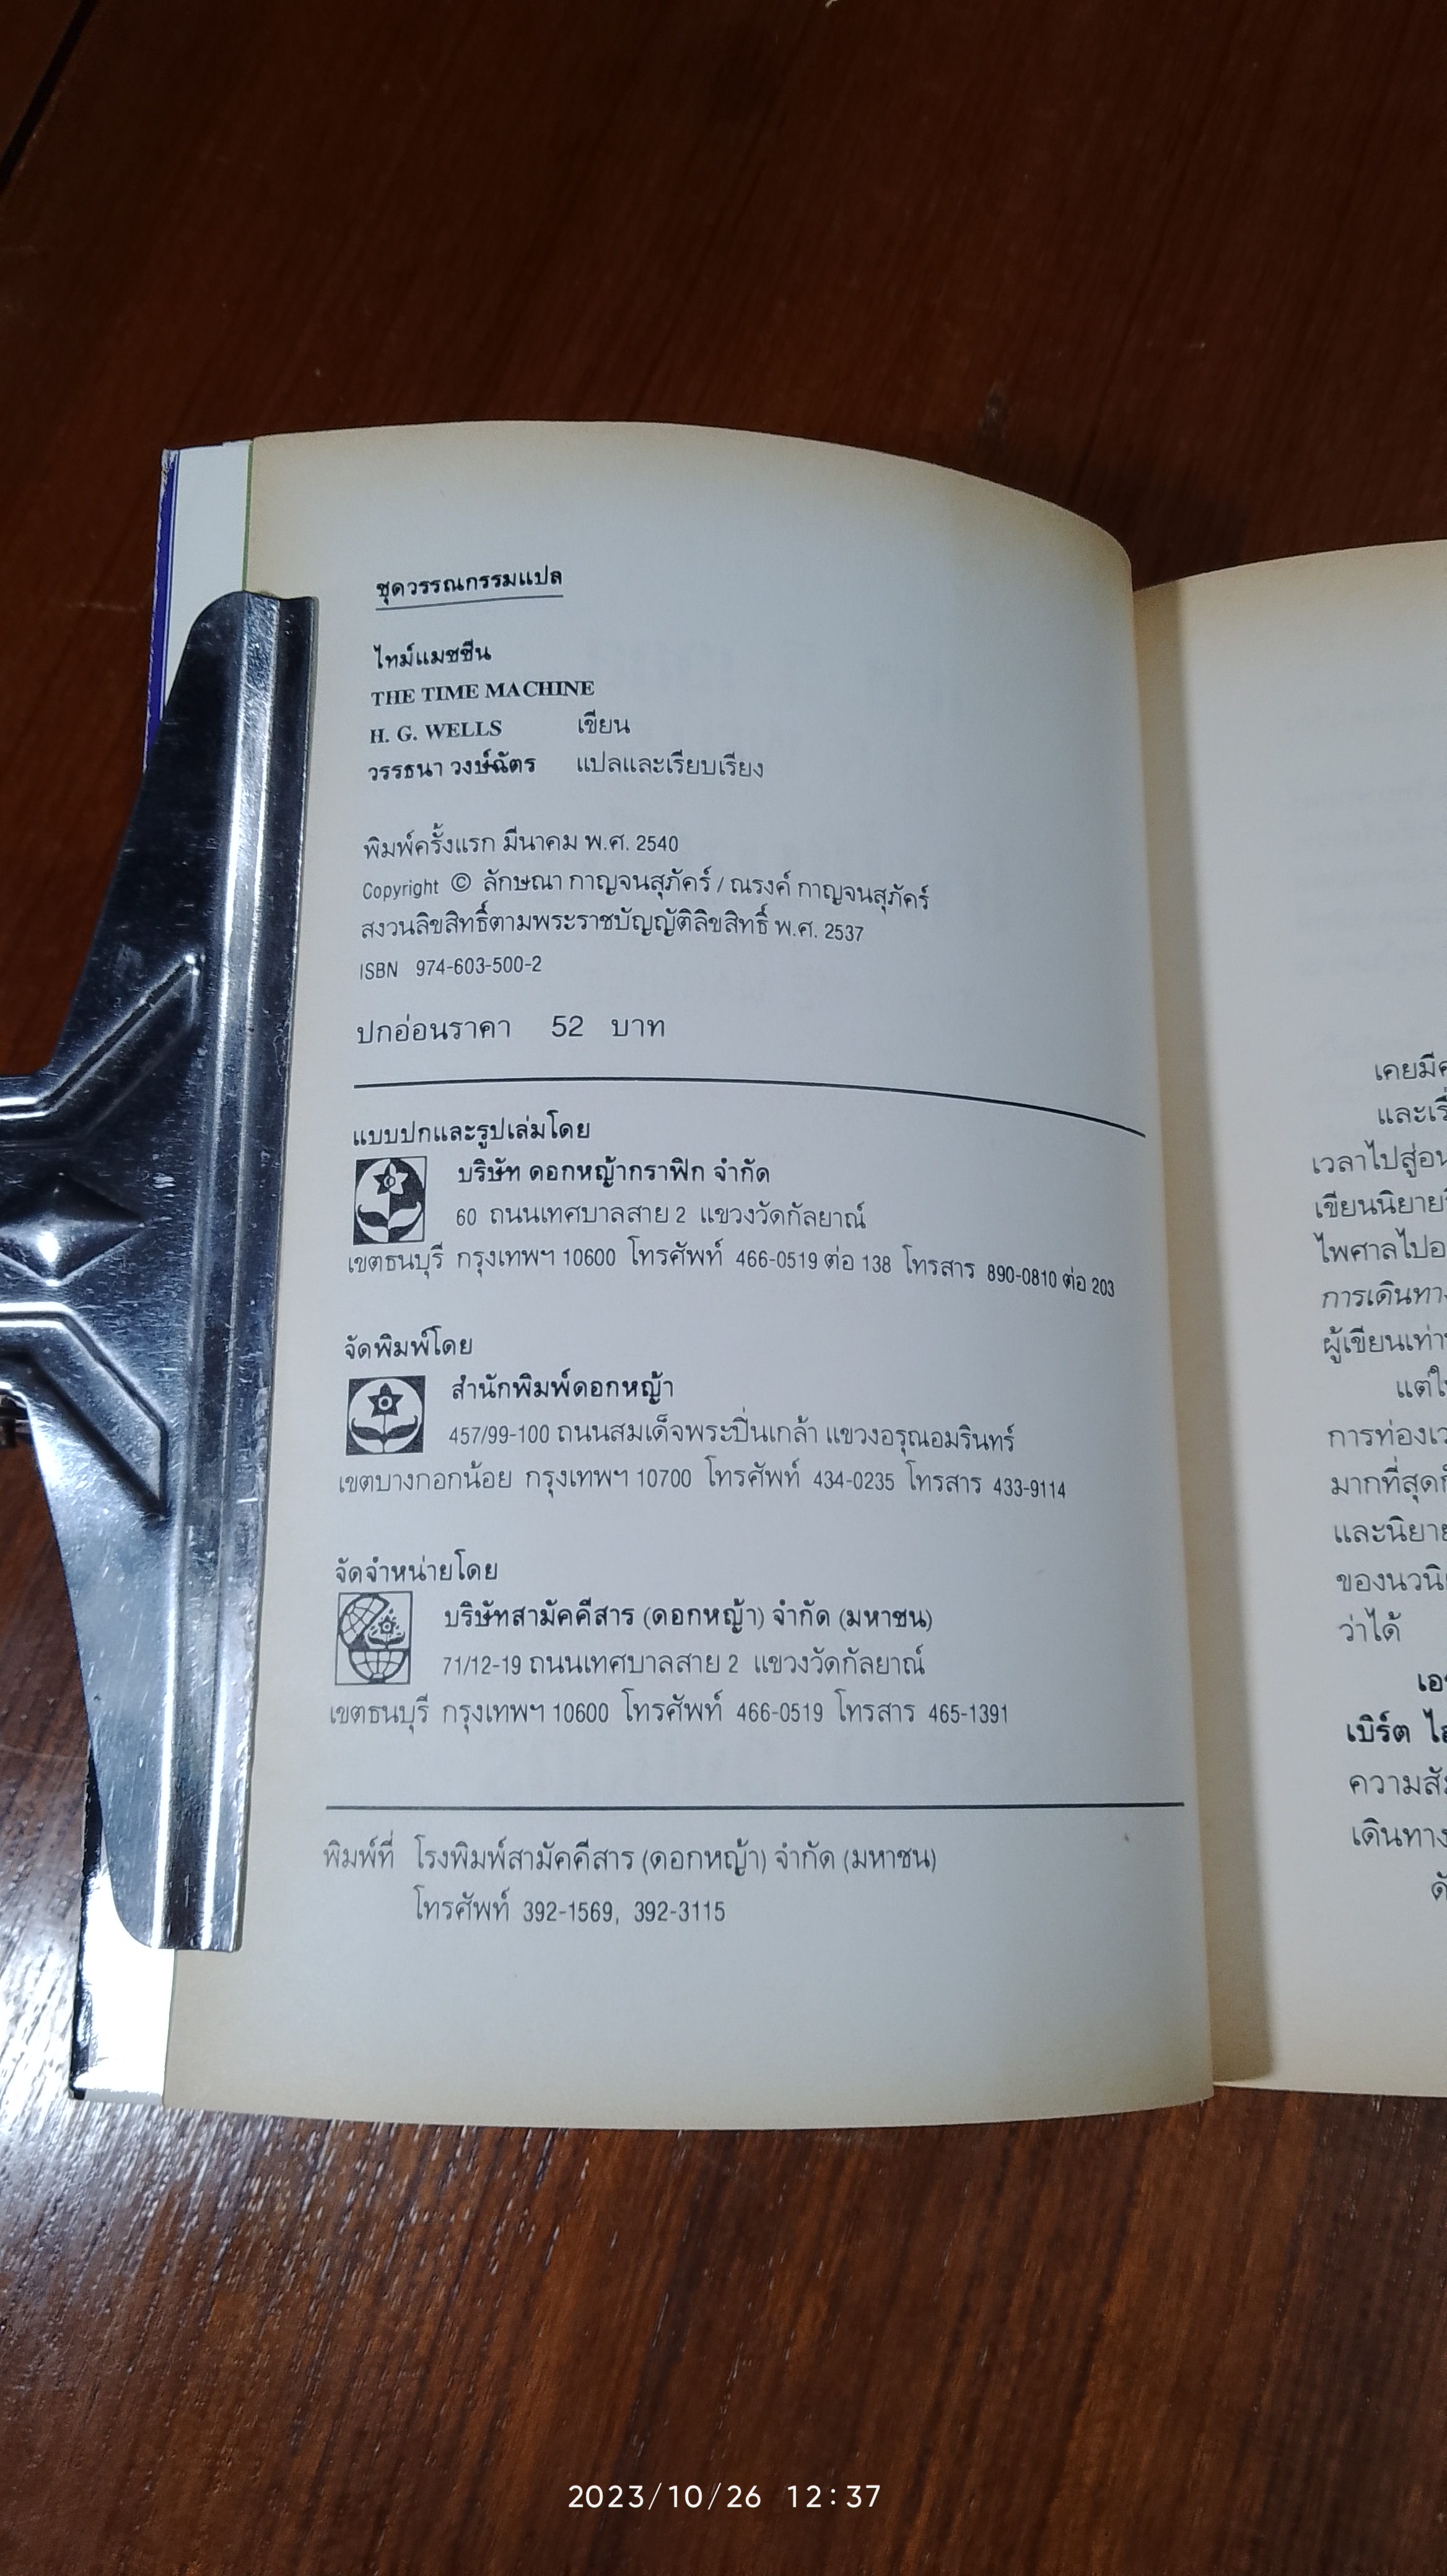 ชุดวรรณกรรมแปล
ไทม์แมชชีน
THE TIME MACHINE
H. G. WELLS เขียน
วรรธนา วงษ์ฉัตร แปลและเรียบเรียง
พิมพ์ครั้งแรก มีนาคม พ.ศ. 2540
Copyright © ลักษณา กาญจนสุภัคร์ / ณรงค์ กาญจนสุภัคร์
สงวนลิขสิทธิ์ตามพระราชบัญญัติลิขสิทธิ์ พ.ศ. 2537
ISBN 974-603-500-2
ปกอ่อนราคา 52 บาท
แบบปกและรูปเล่มโดย
บริษัท ดอกหญ้ากราฟิก จำกัด
60 ถนนเทศบาลสาย 2 แขวงวัดกัลยาณ์
เขตธนบุรี กรุงเทพฯ 10600 โทรศัพท์ 466-0519 ต่อ 138 โทรสาร 890-0810 ต่อ 203
จัดพิมพ์โดย
สำนักพิมพ์ดอกหญ้า
457/99-100 ถนนสมเด็จพระปิ่นเกล้า แขวงอรุณอมรินทร์
เขตบางกอกน้อย กรุงเทพฯ 10700 โทรศัพท์ 434-0235 โทรสาร 433-9114
จัดจำหน่ายโดย
บริษัทสามัคคีสาร (ดอกหญ้า) จำกัด (มหาชน)
71/12-19 ถนนเทศบาลสาย 2 แขวงวัดกัลยาณ์
เขตธนบุรี กรุงเทพฯ 10600 โทรศัพท์ 466-0519 โทรสาร 465-1391
พิมพ์ที่ โรงพิมพ์สามัคคีสาร (ดอกหญ้า) จำกัด (มหาชน)
โทรศัพท์ 392-1569, 392-3115
เคยมี
และ
เวลาไปสู่
เขียนนิยาย
ไพศาลไป
การเดินทาง
ผู้เขียนเท่า
แต่
การท่อง
มากที่สุด
และนิยาย
ของ
ว่าได้
เบิร์ต
ความ
เดินทาง
2023/10/26 12:37